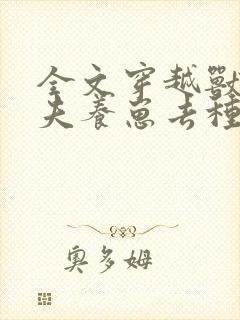 全文穿越獸
夫養崽去種
奧多姆